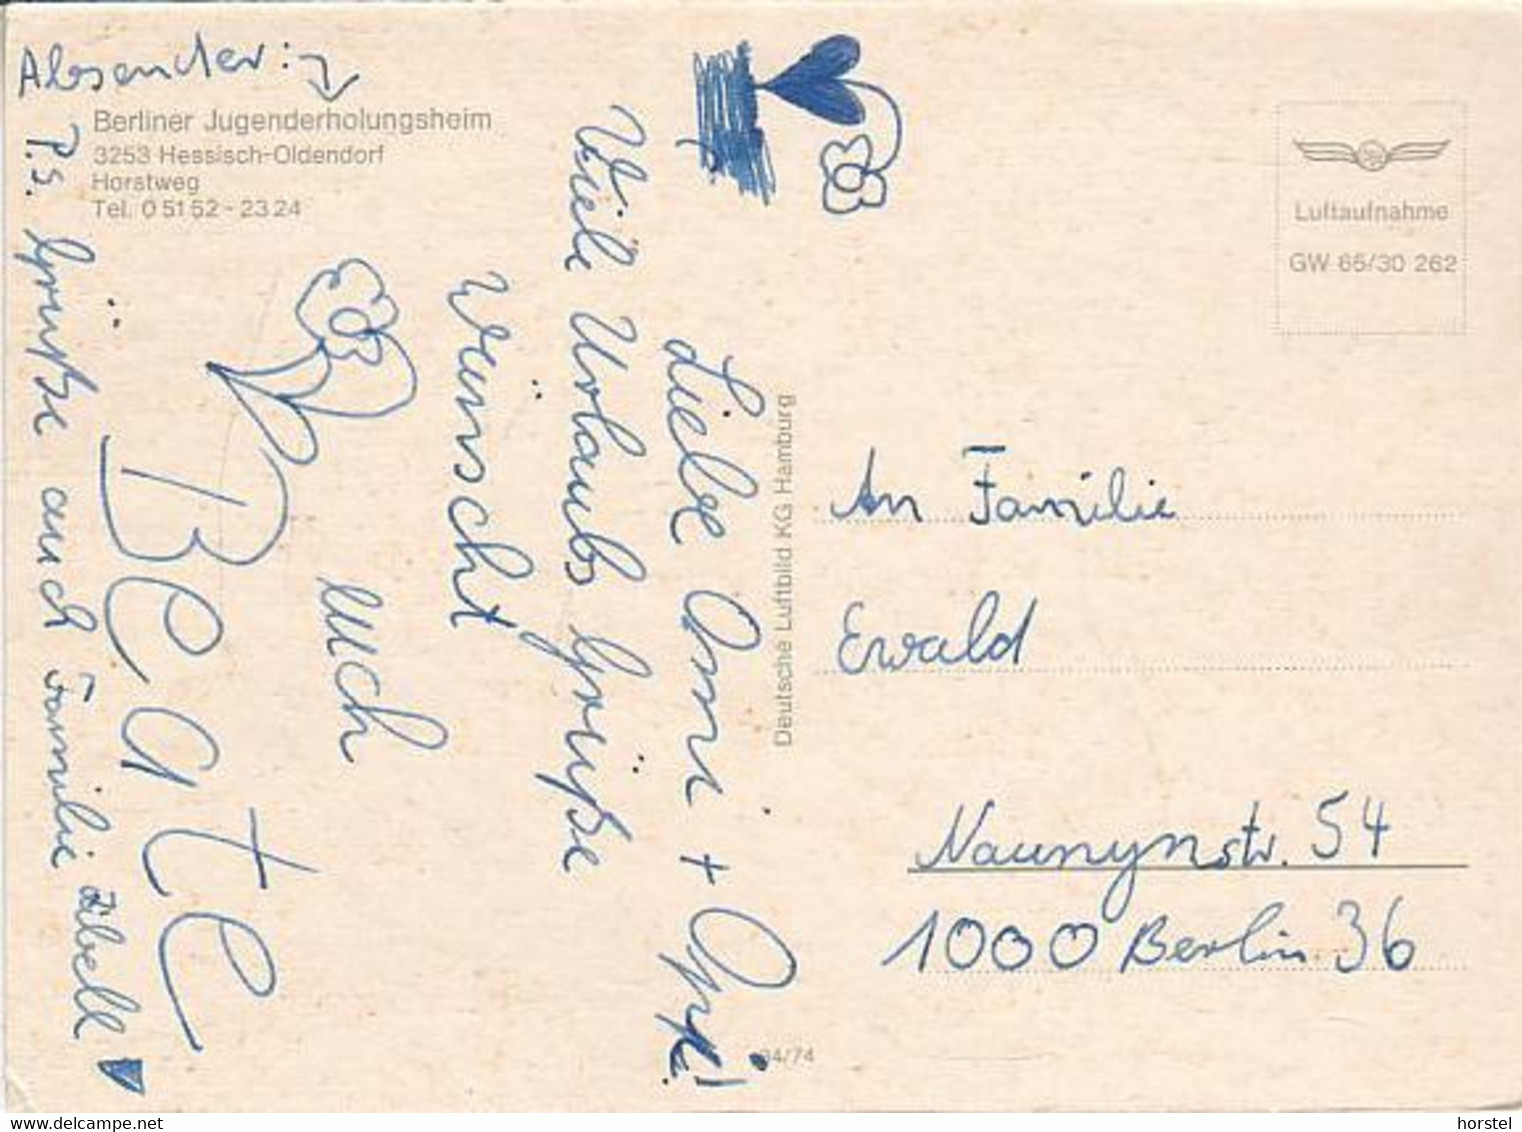 Absender:
Berliner Jugenderholungsheim
3253 Hessisch-Oldendorf
Horstweg
Tel. 0 51 52 - 23 24
Liebe Omi + Opi!
Viele Urlaubs Grüße
Wünscht
euch
Beate
P.S. Grüße auch Familie Zibell
Deutsche Luftbild KG Hamburg
94/74
Luftaufnahme
GW 65/30 262
An Familie
Ewald
Naunynstr. 54
1000 Berlin 36
delcampe.net
horstel